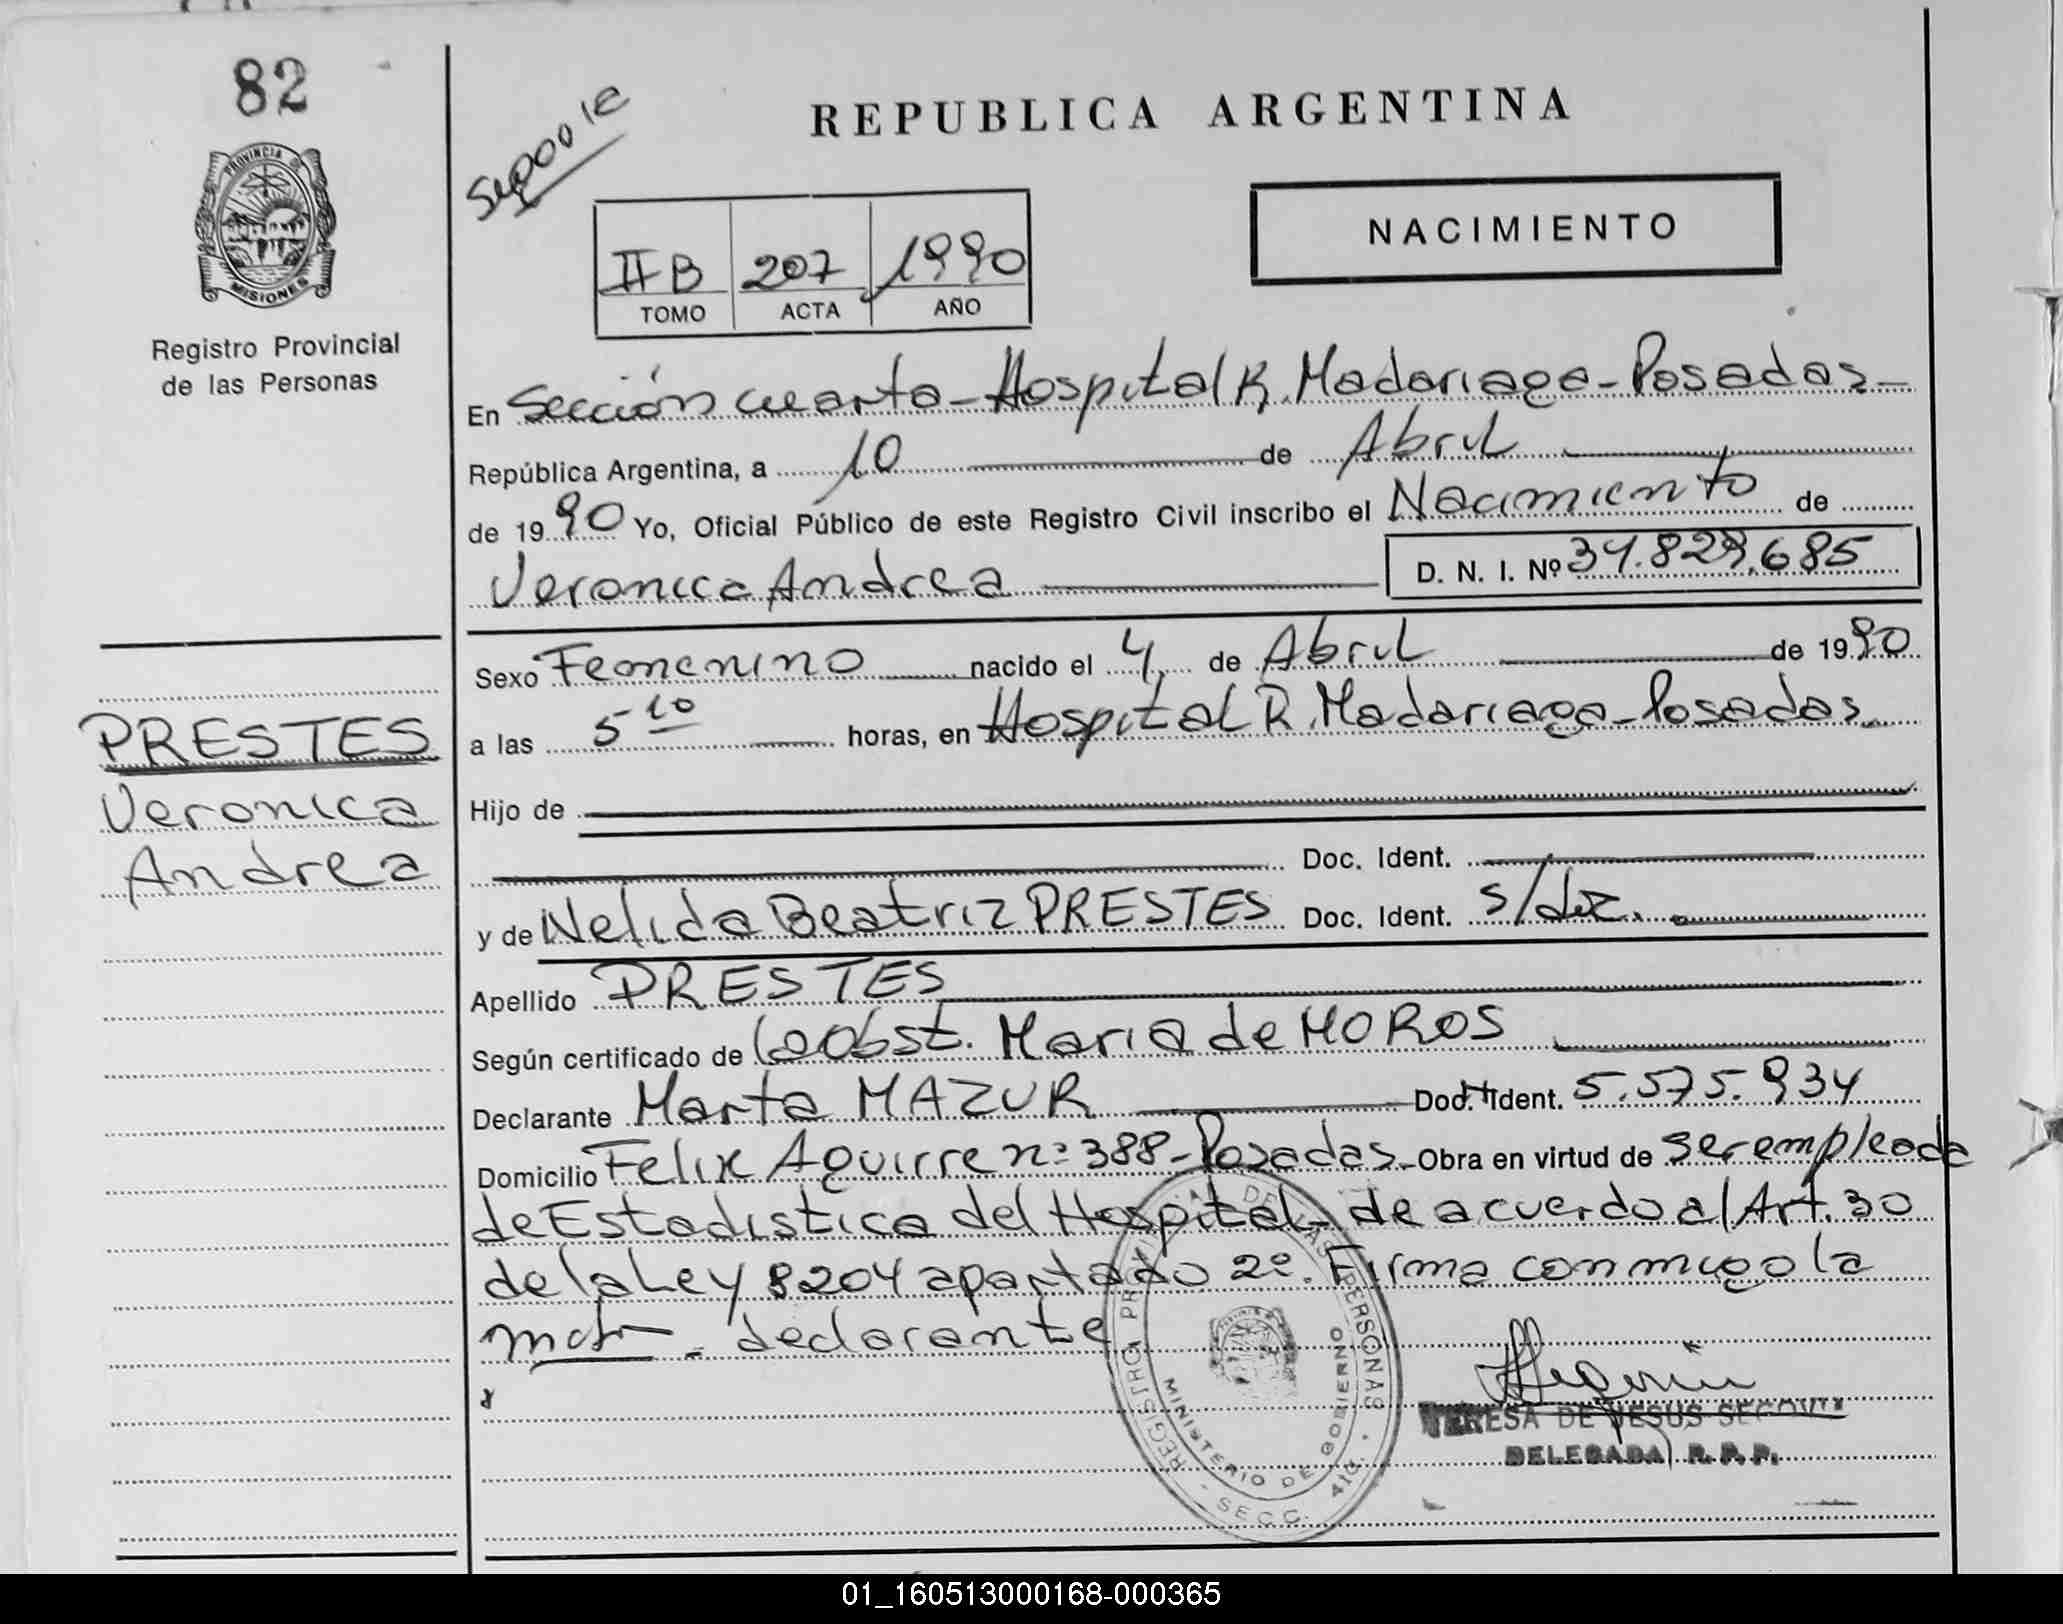 82
PROVINCIA DE
MISIONES
Registro Provincial
de las Personas
REPUBLICA ARGENTINA
NACIMIENTO
IIB 207 1990
TOMO ACTA AÑO
En Sección cuarta - Hospital R. Madariaga - Posadas -
República Argentina, a 10 de Abril
de 1990 Yo, Oficial Público de este Registro Civil inscribo el Nacimiento de
Veronica Andrea D. N. I. Nº 34.829.685
Sexo Femenino nacido el 4 de Abril de 1990
a las 5 10 horas, en Hospital R. Madariaga - Posadas
PRESTES
Veronica
Andrea
Hijo de
Doc. Ident.
y de Nelida Beatriz PRESTES Doc. Ident. s/doc.
Apellido PRESTES
Según certificado de la Obst. Maria de MOROS
Declarante Marta MAZUR Doc. Ident. 5.575.934
Domicilio Felix Aguirre nº 388 - Posadas - Obra en virtud de ser empleada
de Estadistica del Hospital - de acuerdo al Art. 30
de la Ley 8204 apartado 2º. Firma conmigo la
declarante
REGISTRO PROVINCIAL DE LAS PERSONAS
MINISTERIO DE GOBIERNO
SECC. 4ta.
TERESA DE JESUS
DELEGADA R. P. P.
01_160513000168-000365